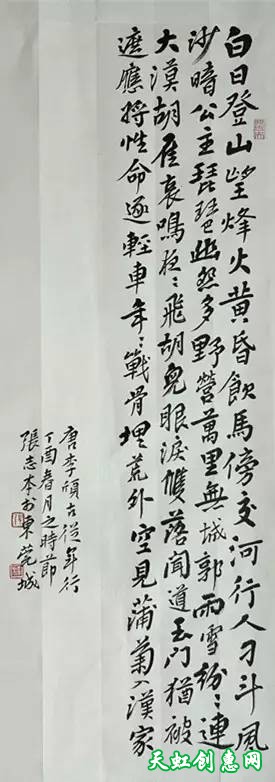 白日登山望烽火黄昏飲馬傍交河行人刁斗風
沙暗公主琵琶幽怨多野營萬里無城郭雨雪紛〻連
大漠胡雁哀鳴夜〻飛胡兒眼淚雙落聞道玉門猶被
遮應將性命逐輕車年〻戰骨埋荒外空見蒲萄入漢家
唐李頎古從軍行
丁酉春月之時節
張志本於東莞城
天虹创惠网